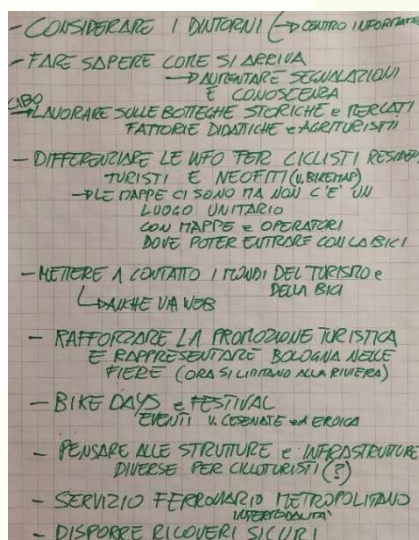 - CONSIDERARE I DINTORNI (→ CENTRO INFORMATIVO
- FARE SAPERE COME SI ARRIVA
→ AUMENTARE SEGNALAZIONI
E CONOSCENZA
CIBO
→ LAVORARE SULLE BOTTEGHE STORICHE e MERCATI
FATTORIE DIDATTICHE e AGRITURISTI
- DIFFERENZIARE LE INFO PER CICLISTI RESIDENTI
TURISTI E NEOFITI (V. BIKEMAP)
→ LE MAPPE CI SONO MA NON C'E' UN
LUOGO UNITARIO
CON MAPPE e OPERATORI
DOVE POTER ENTRARE CON LA BICI
- METTERE A CONTATTO I MONDI DEL TURISMO e
DELLA BICI
→ ANCHE VIA WEB
- RAFFORZARE LA PROMOZIONE TURISTICA
E RAPPRESENTARE BOLOGNA NELLE
FIERE (ORA SI LIMITANO ALLA RIVIERA)
- BIKE DAYS e FESTIVAL
EVENTI V. CESENATE ed EROICA
- PENSARE ALLE STRUTTURE e INFRASTRUTTURE
DIVERSE PER CICLOTURISTI (?)
- SERVIZIO FERROVIARIO METROPOLITANO
INTERMODALITA'
- DISPORRE RICOVERI SICURI